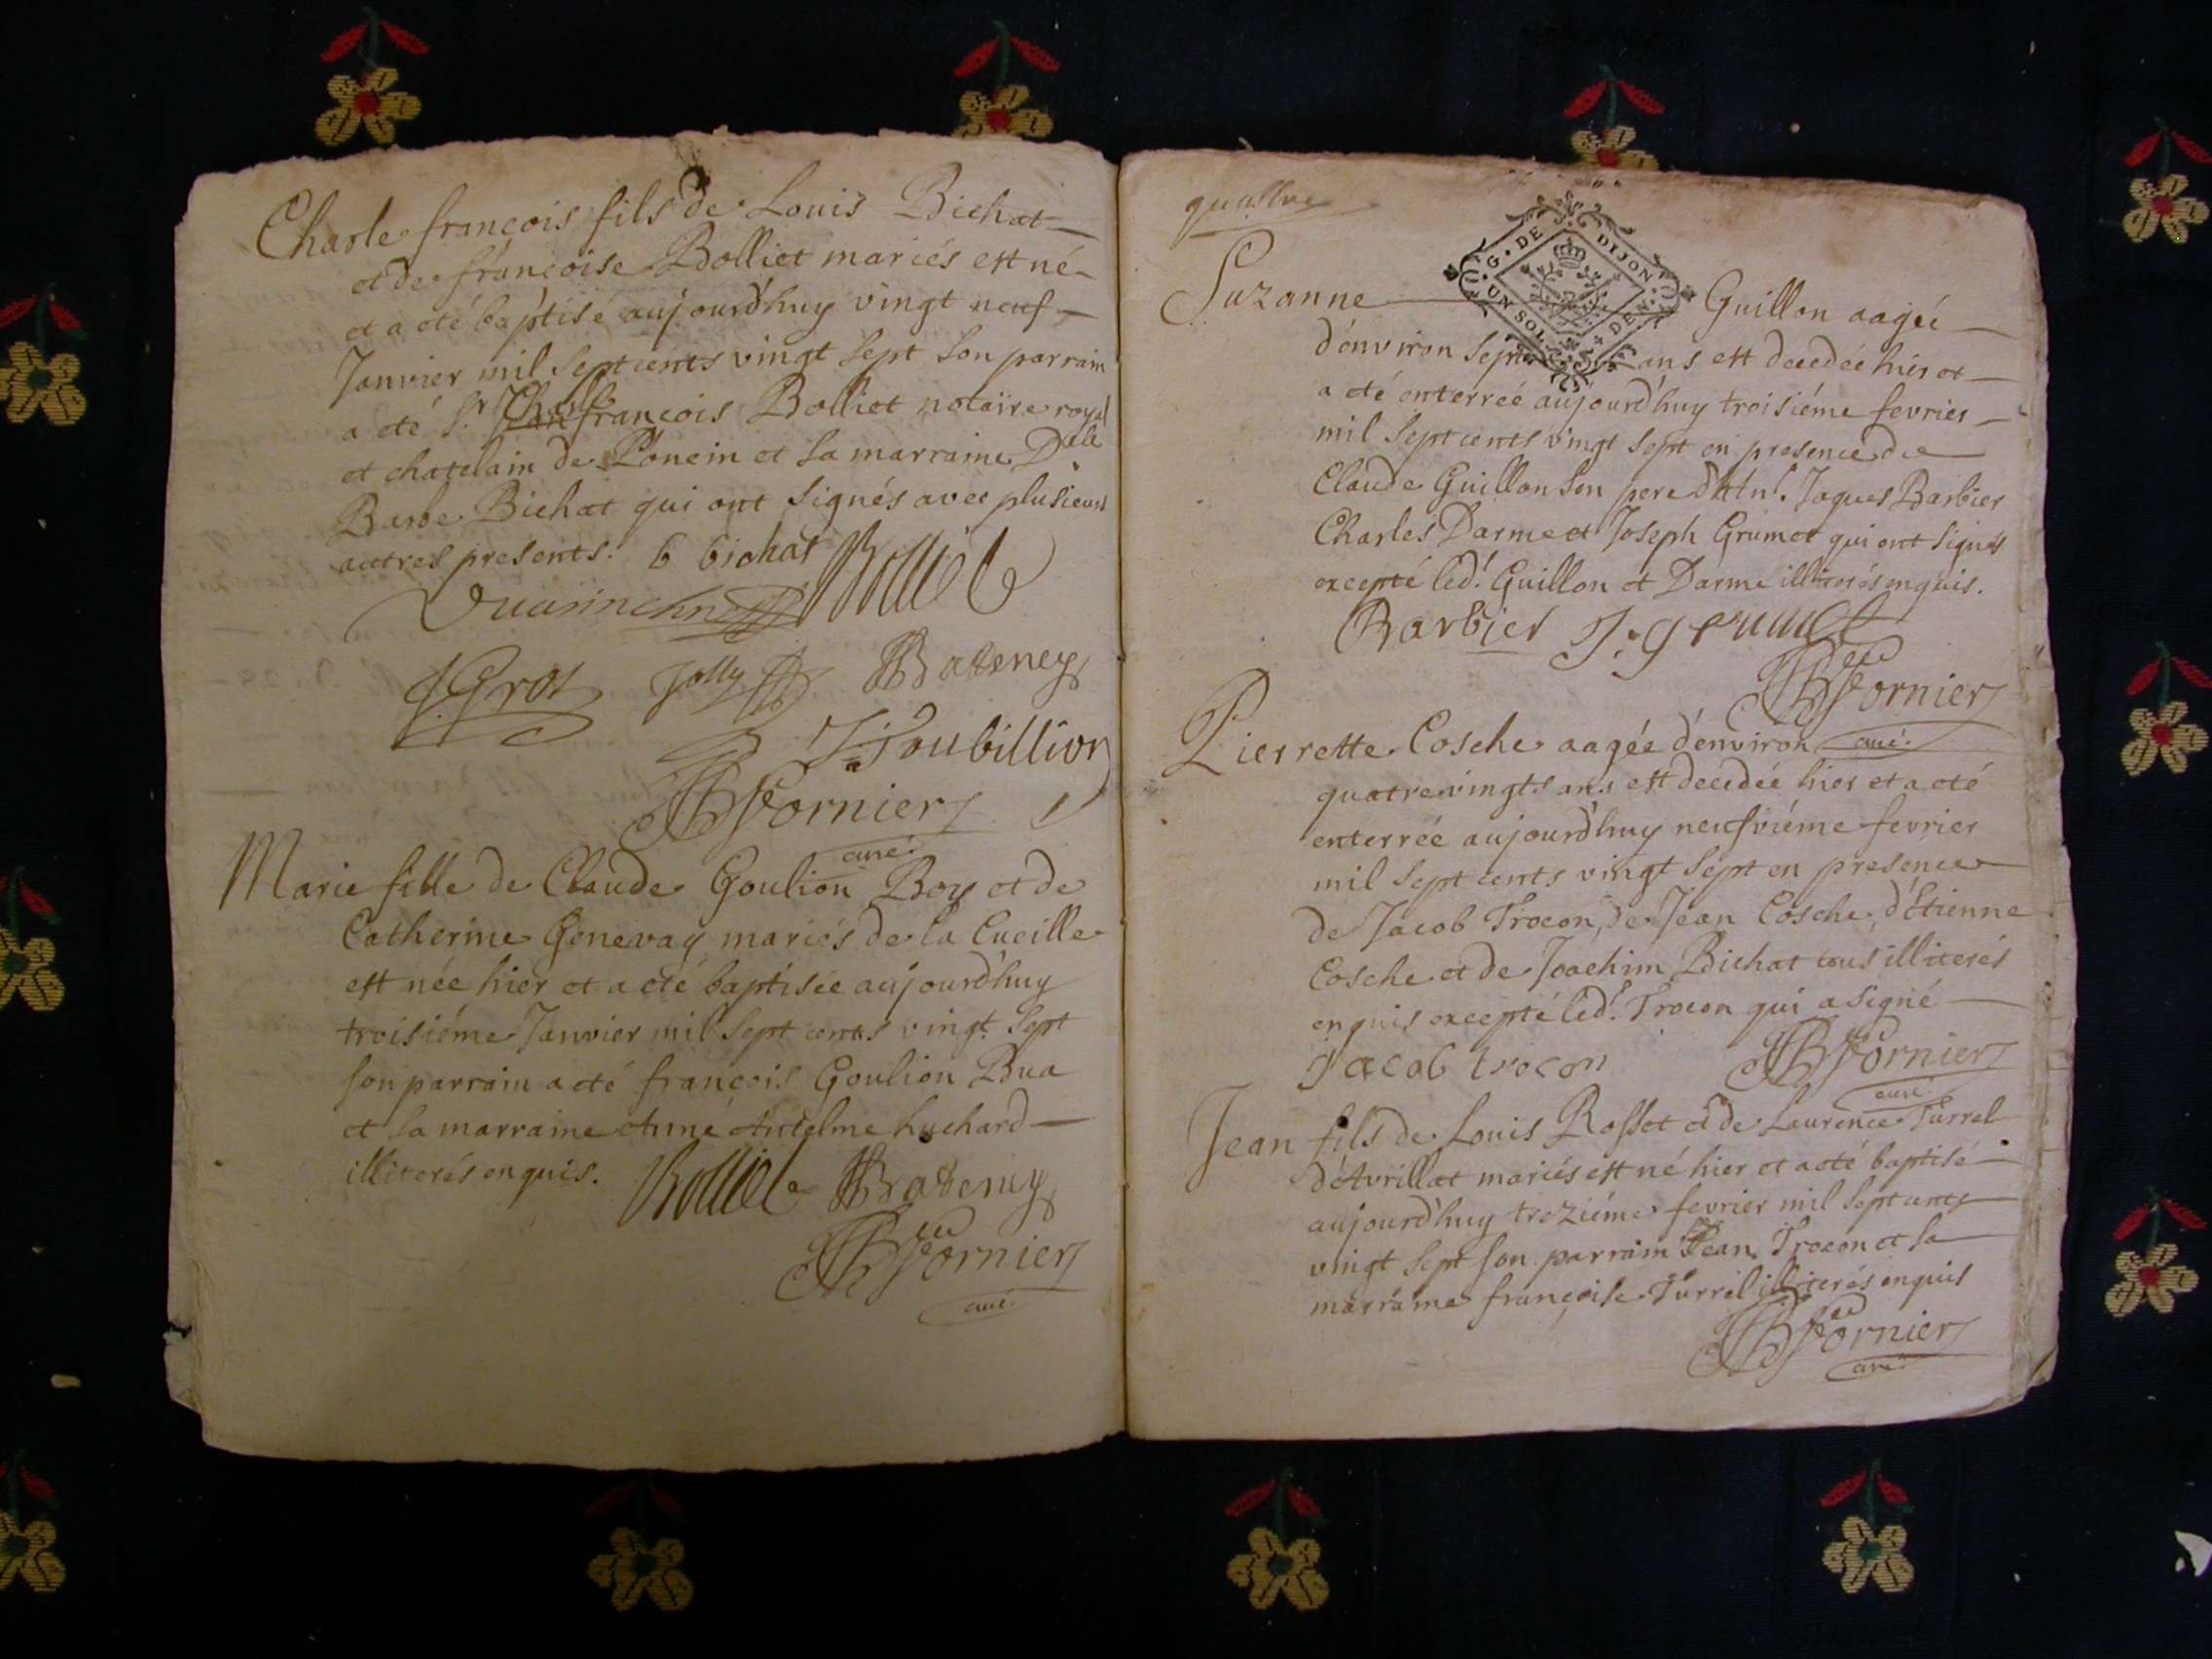 Charle françois fils de Louis Bichat
et de françoise Bolliet mariés est né
et a eté baptisé aujourd'huy vingt neuf
Janvier mil sept cents vingt sept son parrain
a eté Sr. françois Bolliet notaire royal
et chatelain de Poncin et sa marraine Dlle
Barbe Bichat qui ont signés avec plusieurs
autres presents. b bichat Bolliet
J Grot Jolly Bateney
J. Joubillion
Fornier
curé
Marie fille de Claude Goulion Boy et de
Catherine Genevay mariés de la Cueille
est née hier et a eté baptisée aujourd'huy
troisiéme Janvier mil sept cents vingt sept
son parrain a eté françois Goulion Bua
et sa marraine Anne Antelme huchard
illiterés enquis. Bolliet Bateney
Fornier
curé
quattre
G. DE DIJON
UN SOL 4 DEN
Suzanne Guillon aagée
d'environ sept ans est decedée hier et
a eté enterrée aujourd'huy troisiéme fevrier
mil sept cents vingt sept en presence de
Claude Guillon son pere Jaques Barbier
Charles Darme et Joseph Grumet qui ont signés
excepté led. Guillon et Darme illiterés enquis.
Barbier J. grumet
Fornier
curé
Pierrette Cosche aagée d'environ
quatrevingts ans est decedée hier et a eté
enterrée aujourd'huy neufviéme fevrier
mil sept cents vingt sept en presence
de Jacob Trocon, de Jean Cosche, d'Etienne
Cosche et de Joachim Bichat tous illiterés
enquis excepté led. Trocon qui a signé
Jacob trocon Fornier
curé
Jean fils de Louis Rosset et de Laurence Turrel
d'Avrillat mariés est né hier et a eté baptisé
aujourd'huy treziéme fevrier mil sept cents
vingt sept son parrain Jean Trocon et sa
marraine françoise Turrel illiterés enquis
Fornier
curé